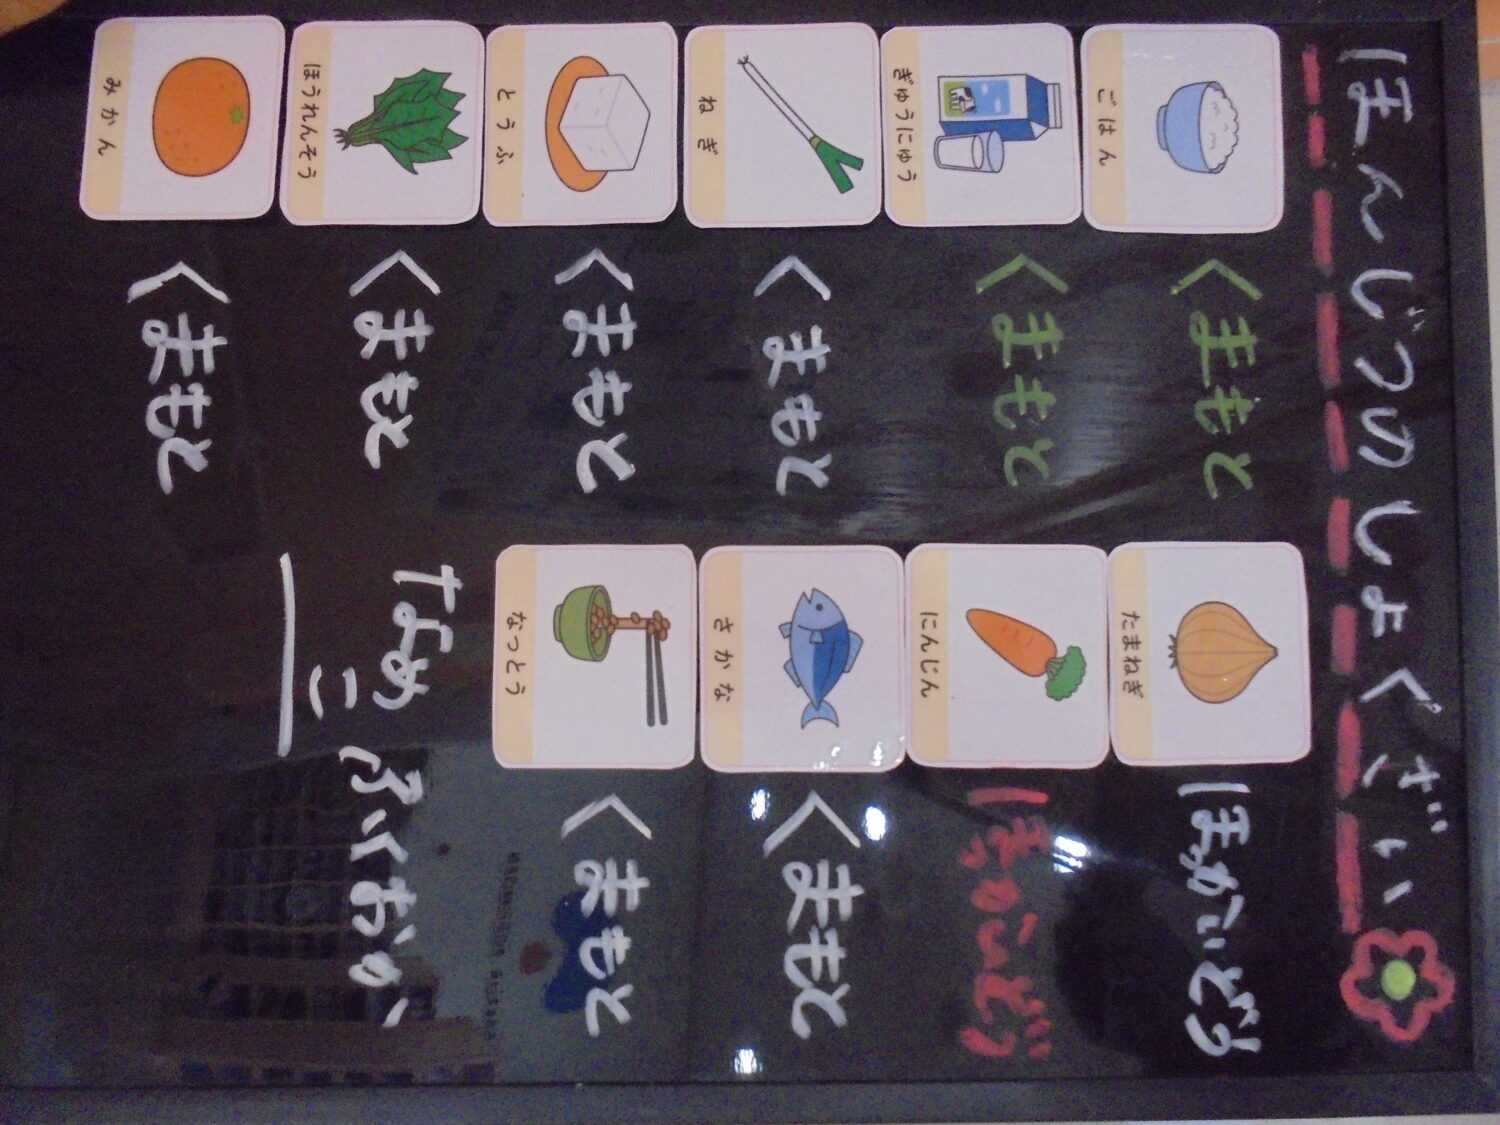 ほんじつのしょくざい
ごはん くまもと
たまねぎ ほっかいどう
ぎゅうにゅう くまもと
にんじん ほっかいどう
ねぎ くまもと
さかな くまもと
とうふ くまもと
なっとう くまもと
ほうれんそう くまもと
なめこ ふくおか
みかん くまもと